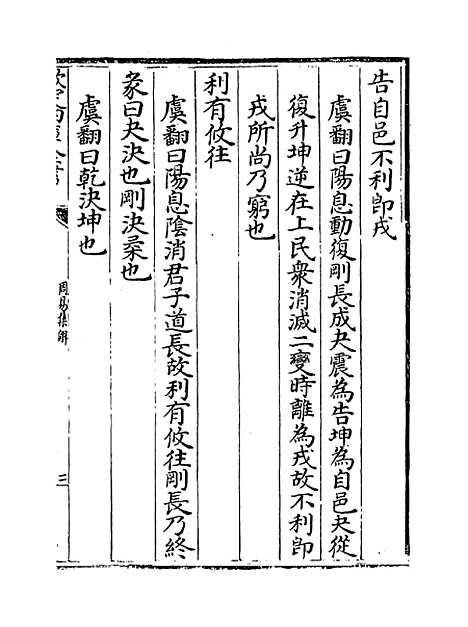 告自邑不利即戎
虞翻曰陽息動復剛長成夬震為告坤為自邑夬從
復升坤逆在上民衆消滅二變時離為戎故不利即
戎所尚乃窮也
利有攸往
虞翻曰陽息陰消君子道長故利有攸往剛長乃終
彖曰夬決也剛決柔也
虞翻曰乾決坤也
周易集解
三